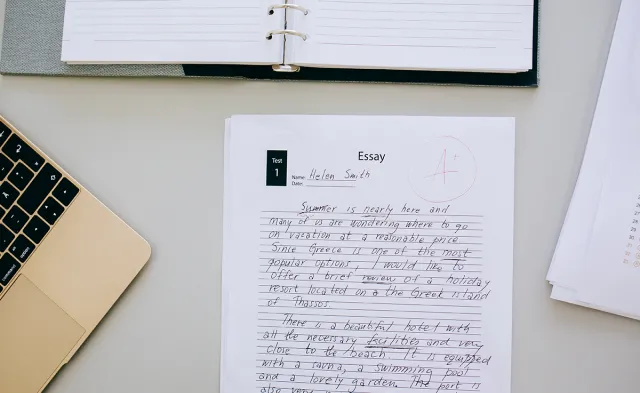 Test
1
Essay
A+
Name: Helen Smith
Date:
Summer is nearly here and
many of us are wondering where to go
on vacation at a reasonable price.
Since Greece is one of the most
popular options, I would like to
offer a brief review of a holiday
resort located on the Greek island
of Thassos.
There is a beautiful hotel with
all the necessary facilities and very
close to the beach. It is equipped
with a sauna, a swimming pool
and a lovely garden. The port is
also very